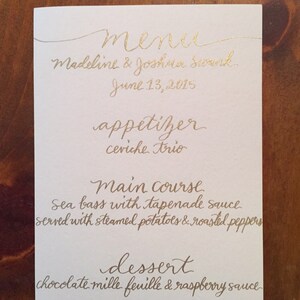 menu
Madeline & Joshua Swank
June 13, 2015
appetizer
ceviche trio
main course
sea bass with tapenade sauce
served with steamed potatoes & roasted peppers
dessert
chocolate mille feuille & raspberry sauce